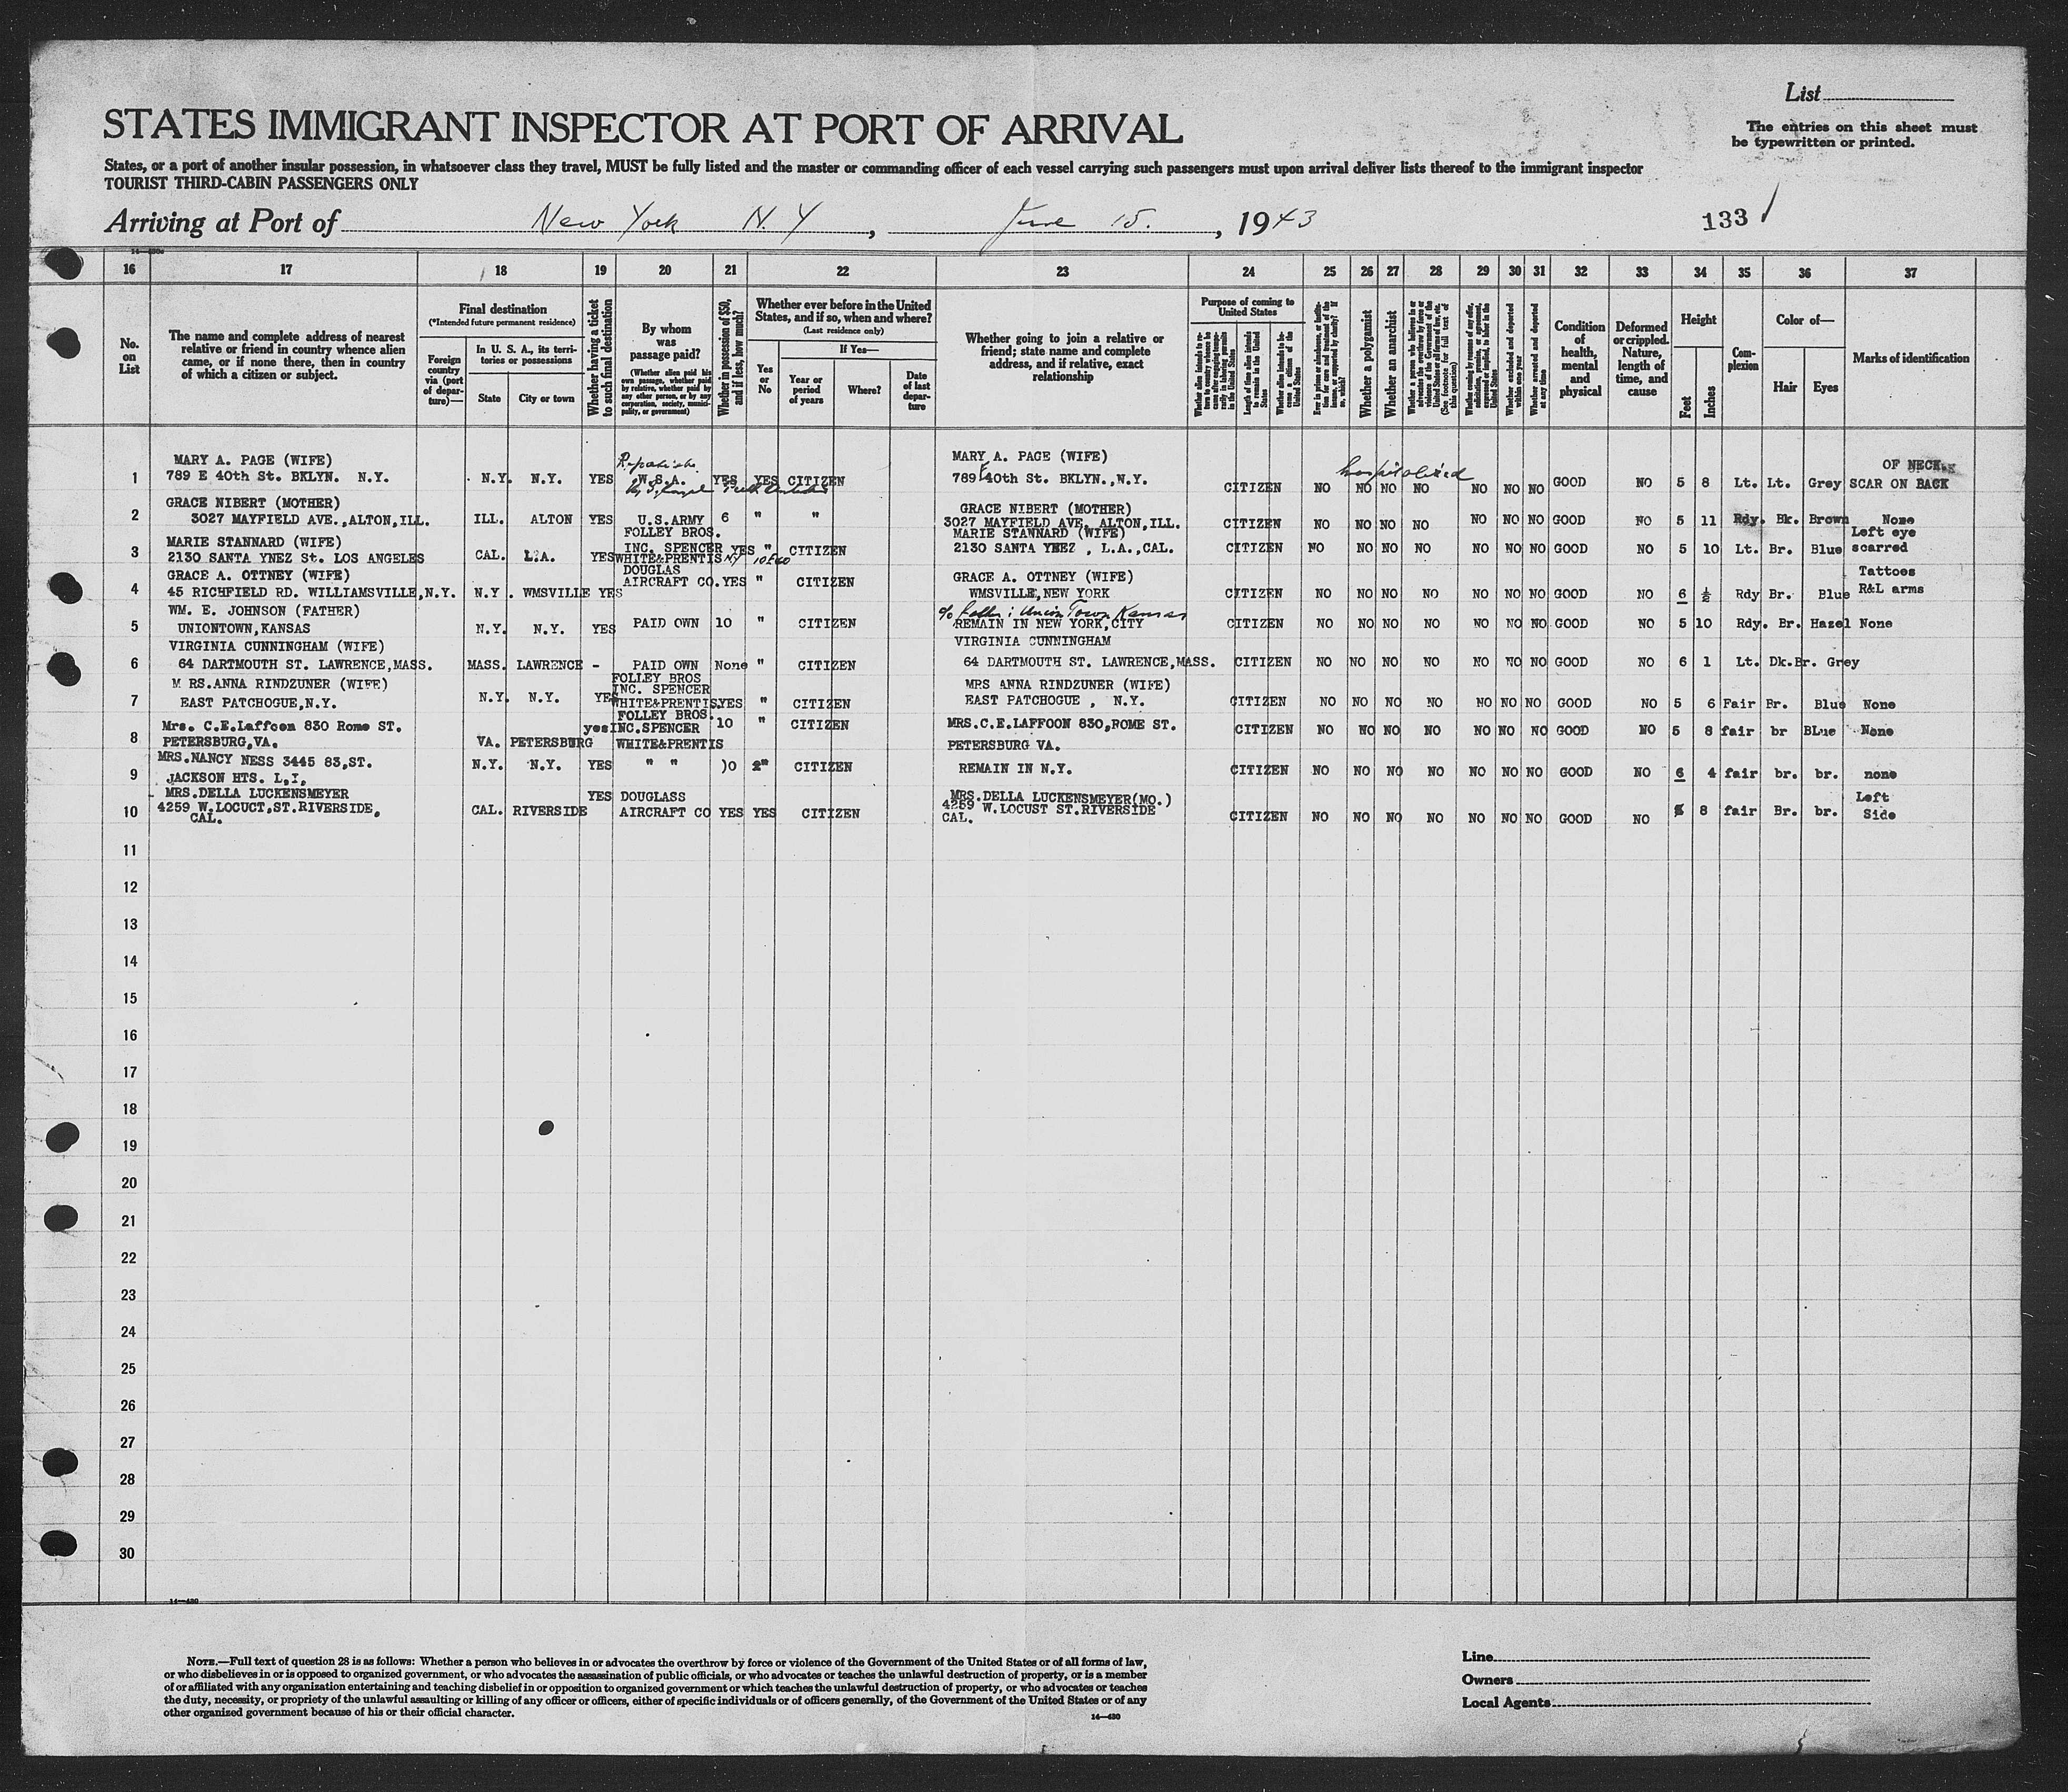 List
STATES IMMIGRANT INSPECTOR AT PORT OF ARRIVAL
The entries on this sheet must
be typewritten or printed.
States, or a port of another insular possession, in whatsoever class they travel, MUST be fully listed and the master or commanding officer of each vessel carrying such passengers must upon arrival deliver lists thereof to the immigrant inspector
TOURIST THIRD-CABIN PASSENGERS ONLY
Arriving at Port of New York N.Y, June 15., 1943
133
16 17 18 19 20 21 22 23 24 25 26 27 28 29 30 31 32 33 34 35 36 37
No. on List
The name and complete address of nearest
relative or friend in country whence alien
came, or if none there, then in country
of which a citizen or subject.
Final destination
(*Intended future permanent residence)
Foreign country via (port of departure)—
In U. S. A., its territories or possessions
State
City or town
Whether having a ticket to such final destination
By whom was passage paid?
(Whether alien paid his own passage, whether paid by relative, whether paid by any other person, or by any corporation, society, municipality, or government)
Whether in possession of $50, and if less, how much?
Whether ever before in the United States, and if so, when and where?
(Last residence only)
Yes or No
If Yes—
Year or period of years
Where?
Date of last departure
Whether going to join a relative or
friend; state name and complete
address, and if relative, exact
relationship
Purpose of coming to United States
Whether a polygamist
Whether an anarchist
Condition of health, mental and physical
Deformed or crippled. Nature, length of time, and cause
Height
Feet
Inches
Complexion
Color of—
Hair
Eyes
Marks of identification
MARY A. PAGE (WIFE) MARY A. PAGE (WIFE) hospitalized OF NECK
1 789 E 40th St. BKLYN. N.Y. N.Y. N.Y. YES W.S.A. YES YES CITIZEN 789 E 40th St. BKLYN.,N.Y. CITIZEN NO NO NO NO NO NO NO GOOD NO 5 8 Lt. Lt. Grey SCAR ON BACK
GRACE NIBERT (MOTHER) GRACE NIBERT (MOTHER)
2 3027 MAYFIELD AVE.,ALTON,ILL. ILL. ALTON YES U.S.ARMY 6 " " 3027 MAYFIELD AVE. ALTON,ILL. CITIZEN NO NO NO NO NO NO NO GOOD NO 5 11 Rdy. Bk. Brown None
MARIE STANNARD (WIFE) FOLLEY BROS. MARIE STANNARD (WIFE) Left eye
3 2130 SANTA YNEZ St. LOS ANGELES CAL. L.A. YES INC. SPENCER YES " CITIZEN 2130 SANTA YNEZ , L.A.,CAL. CITIZEN NO NO NO NO NO NO NO GOOD NO 5 10 Lt. Br. Blue scarred
WHITE&PRENTIS
GRACE A. OTTNEY (WIFE) DOUGLAS GRACE A. OTTNEY (WIFE) Tattoes
4 45 RICHFIELD RD. WILLIAMSVILLE,N.Y. N.Y. WMSVILLE YES AIRCRAFT CO. YES " CITIZEN WMSVILLE,NEW YORK CITIZEN NO NO NO NO NO NO NO GOOD NO 6 ½ Rdy Br. Blue R&L arms
WM. E. JOHNSON (FATHER) c/o father: Union Town Kansas
5 UNIONTOWN,KANSAS N.Y. N.Y. YES PAID OWN 10 " CITIZEN REMAIN IN NEW YORK,CITY CITIZEN NO NO NO NO NO NO NO GOOD NO 5 10 Rdy. Br. Hazel None
VIRGINIA CUNNINGHAM (WIFE) VIRGINIA CUNNINGHAM
6 64 DARTMOUTH ST. LAWRENCE,MASS. MASS. LAWRENCE - PAID OWN None " CITIZEN 64 DARTMOUTH ST. LAWRENCE,MASS. CITIZEN NO NO NO NO NO NO NO GOOD NO 6 1 Lt. Dk.Br. Grey
M RS.ANNA RINDZUNER (WIFE) FOLLEY BROS INC. SPENCER MRS ANNA RINDZUNER (WIFE)
7 EAST PATCHOGUE,N.Y. N.Y. N.Y. YES WHITE&PRENTIS.YES " CITIZEN EAST PATCHOGUE , N.Y. CITIZEN NO NO NO NO NO NO NO GOOD NO 5 6 Fair Br. Blue None
Mrs. C.E.Laffoon 830 Rome ST. yes FOLLEY BROS. INC.SPENCER 10 " CITIZEN MRS.C.E.LAFFOON 830,ROME ST.
8 PETERSBURG,VA. VA. PETERSBURG WHITE&PRENTIS PETERSBURG VA. CITIZEN NO NO NO NO NO NO NO GOOD NO 5 8 fair br BLue None
MRS.NANCY NESS 3445 83,ST.
9 JACKSON HTS. L,I, N.Y. N.Y. YES " " )0 " CITIZEN REMAIN IN N.Y. CITIZEN NO NO NO NO NO NO NO GOOD NO 6 4 fair br. br. none
MRS.DELLA LUCKENSMEYER YES DOUGLASS MRS.DELLA LUCKENSMEYER(MO.) Left
10 4259 W.LOCUCT,ST.RIVERSIDE, CAL. CAL. RIVERSIDE AIRCRAFT CO YES YES CITIZEN 4259 W.LOCUST ST.RIVERSIDE CAL. CITIZEN NO NO NO NO NO NO NO GOOD NO 8 fair Br. br. Side
11
12
13
14
15
16
17
18
19
20
21
22
23
24
25
26
27
28
29
30
14—430
NOTE.—Full text of question 28 is as follows: Whether a person who believes in or advocates the overthrow by force or violence of the Government of the United States or of all forms of law,
or who disbelieves in or is opposed to organized government, or who advocates the assassination of public officials, or who advocates or teaches the unlawful destruction of property, or is a member
of or affiliated with any organization entertaining and teaching disbelief in or opposition to organized government or which teaches the unlawful destruction of property, or who advocates or teaches
the duty, necessity, or propriety of the unlawful assaulting or killing of any officer or officers, either of specific individuals or of officers generally, of the Government of the United States or of any
other organized government because of his or their official character.
14—430
Line
Owners
Local Agents